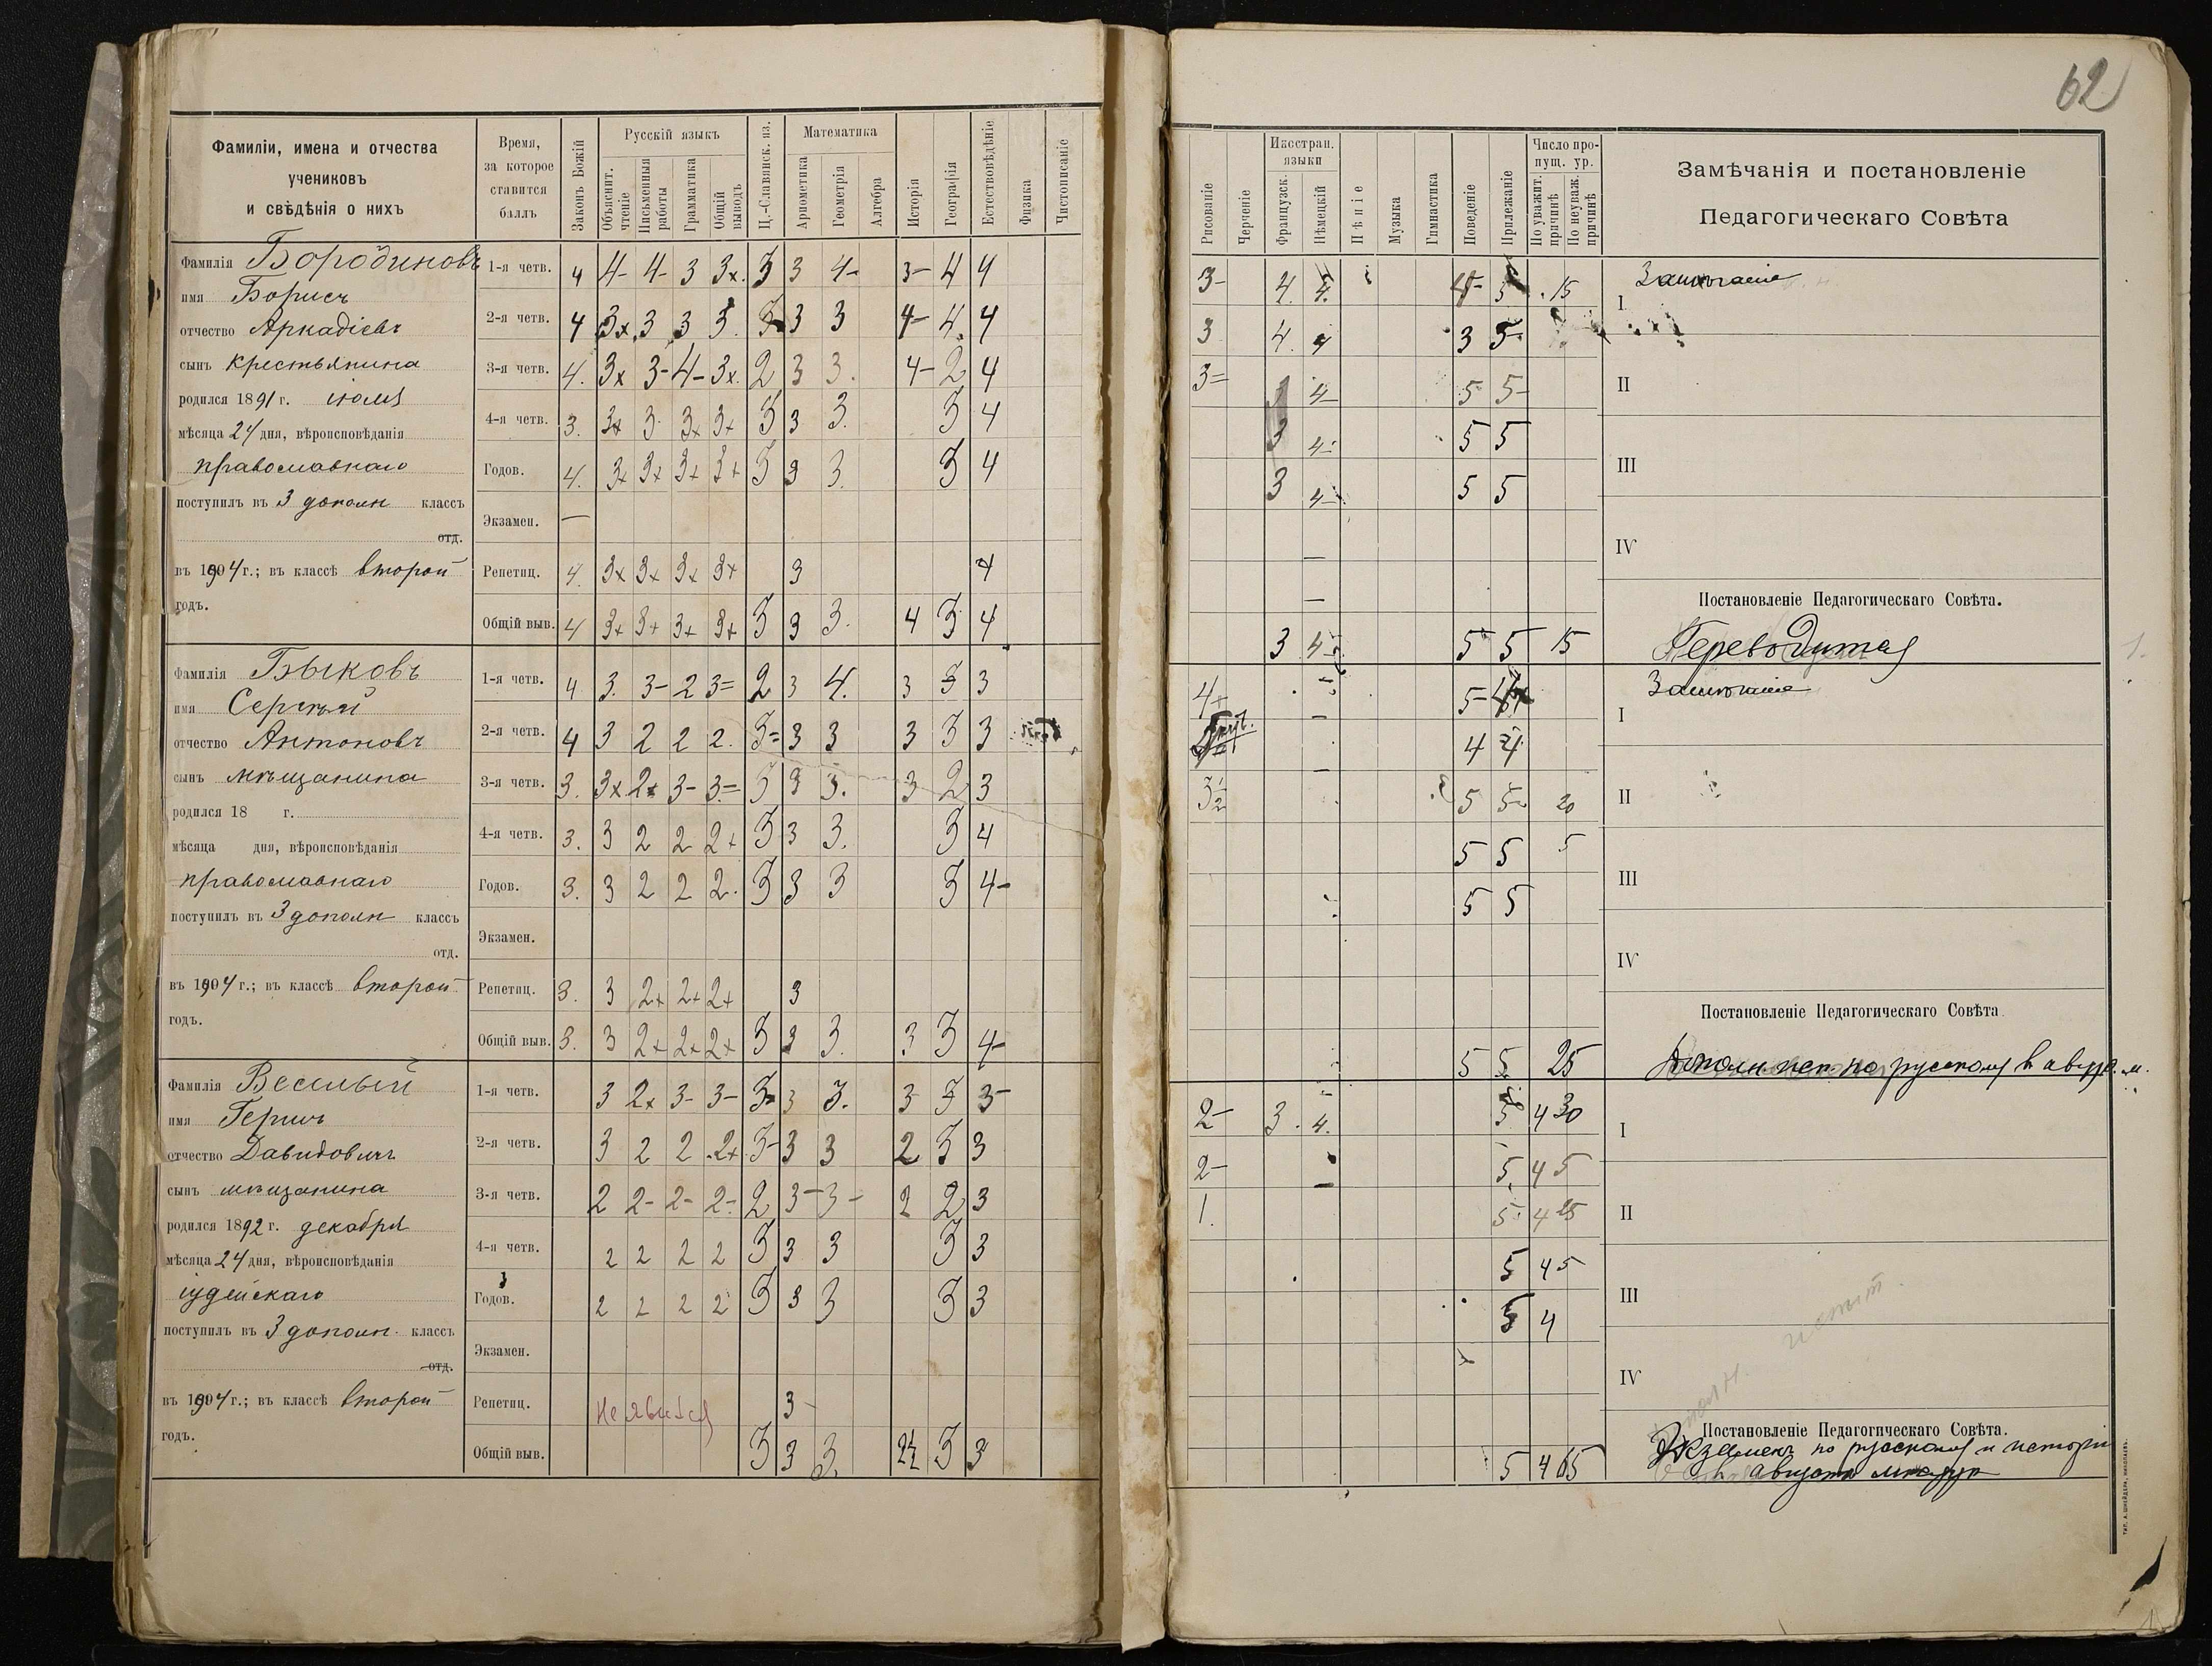 62
Фамиліи, имена и отчества
учениковъ
и свѣдѣнія о нихъ
Время,
за которое
ставится
баллъ
Законъ Божій
Русскій языкъ
Объяснит. чтеніе
Письменныя работы
Грамматика
Общій выводъ
Ц.-Славянск. яз.
Математика
Ариѳметика
Геометрія
Алгебра
Исторія
Географія
Естествовѣдѣніе
Физика
Чистописаніе
Рисованіе
Черченіе
Иностран. языки
Французск.
Нѣмецкій
Пѣніе
Музыка
Гимнастика
Поведеніе
Прилежаніе
Число пропущ. ур.
По уважит. причинѣ
По неуваж. причинѣ
Замѣчанія и постановленіе
Педагогическаго Совѣта
Фамилія Бородиновъ
имя Борисъ
отчество Аркадіевъ
сынъ крестьянина
родился 1891 г. іюля
мѣсяца 24 дня, вѣроисповѣданія
православнаго
поступилъ въ 3 дополн классъ
отд.
въ 1904 г.; въ классѣ второй
годъ.
1-я четв. 4 4- 4- 3 3х. 3 3 4- 3- 4 4
2-я четв. 4 3х 3 3 3. 3 3 3 4- 4. 4
3-я четв. 4. 3х 3- 4- 3х. 2 3 3. 4- 2 4
4-я четв. 3. 3х 3 3х 3+ 3 3 3. 3 4
Годов. 4. 3х 3х 3+ 3+ 3 3 3. 3 4
Экзамен. —
Репетиц. 4. 3х 3х 3х 3+ 3 4
Общій выв. 4 3+ 3+ 3+ 3+ 3 3 3. 4 3 4
3- 4. 4. 5 15
3 4. 4 3 5
3= 4- 5 5-
3 4- 5 5
3 4- 5 5
3 4 5 5 15
I
II
III
IV
Постановленіе Педагогическаго Совѣта.
Переводится
Фамилія Быковъ
имя Сергѣй
отчество Антоновъ
сынъ мѣщанина
родился 18 г.
мѣсяца дня, вѣроисповѣданія
православнаго
поступилъ въ 3 дополн классъ
отд.
въ 1904 г.; въ классѣ второй
годъ.
1-я четв. 4 3. 3- 2 3= 2 3 4. 3 3 3
2-я четв. 4 3 2 2 2. 3= 3 3 3 3 3
3-я четв. 3. 3х 2х 3- 3= 3 3 3. 3 2 3
4-я четв. 3. 3 2 2 2+ 3 3 3. 3 4
Годов. 3. 3 2 2 2. 3 3 3 3 4-
Экзамен.
Репетиц. 3. 3 2+ 2+ 2+ 3
Общій выв. 3. 3 2+ 2+ 2+ 3 3 3. 3 3 4-
4+ 5-
4 4
3½ 5 5 20
5 5 5
5 5
5 5 25
I
II
III
IV
Постановленіе Педагогическаго Совѣта
Дополн. исп. по русскому в авг.
Фамилія Веселый
имя Гершъ
отчество Давидовичъ
сынъ мѣщанина
родился 1892 г. декабря
мѣсяца 24 дня, вѣроисповѣданія
іудейскаго
поступилъ въ 3 дополн. классъ
отд.
въ 1904 г.; въ классѣ второй
годъ.
1-я четв. 3 2х 3- 3- 3 3 3. 3 3 3-
2-я четв. 3 2 2 2+ 3- 3 3 2 3 3
3-я четв. 2 2- 2- 2- 2 3- 3- 2 2 3
4-я четв. 2 2 2 2 3 3 3 3 3
Годов. 2 2 2 2 3 3 3 3 3
Экзамен.
Репетиц. Не явился 3-
Общій выв. 3 3 3. 2½ 3 3
2- 3. 4. 5 4 30
2- 5. 4 5
1. 5 4 25
5 4 5
5 4
5 4 65
I
II
III
IV
Постановленіе Педагогическаго Совѣта.
Экзаменъ по русскому и исторіи
в августѣ
ТИП. А. ШНЕЙДЕРА, НИКОЛАЕВЪ.